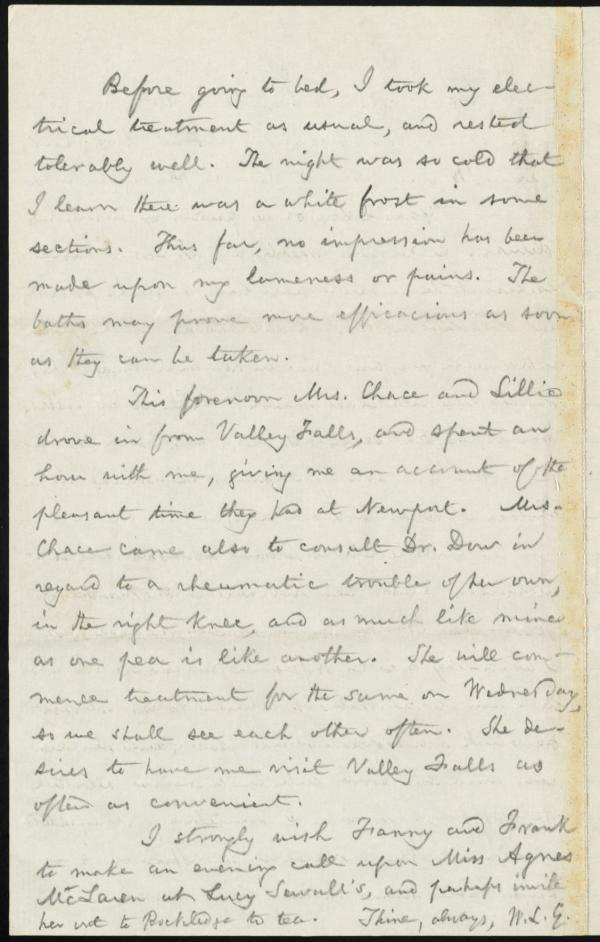 Before going to bed, I took my elec-
trical treatment as usual, and rested
tolerably well. The night was so cold that
I learn there was a white frost in some
sections. Thus far, no impression has been
made upon my lameness or pains. The
baths may prove more efficacious as soon
as they can be taken.
This forenoon Mrs. Chace and Lillie
drove in from Valley Falls, and spent an
hour with me, giving me an account of the
pleasant time they had at Newport. Mrs.
Chace came also to consult Dr. Dow in
regard to a rheumatic trouble of her own,
in the right knee, and as much like mine
as one pea is like another. She will com-
mence treatment for the same on Wednesday,
so we shall see each other often. She de-
sires to have me visit Valley Falls as
often as convenient.
I strongly wish Fanny and Frank
to make an evening call upon Miss Agnes
McLaren at Lucy Sewall's, and perhaps invite
her out to Rockledge to tea. Thine, always, W.L.G.